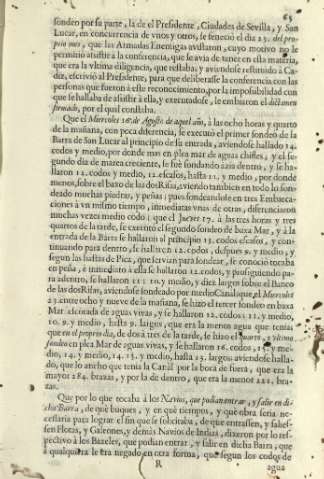 65
sondeo por su parte, la de el Presidente, Ciudades de Sevilla, y San
Lucar, en concurrencia de vnos y otros, se feneció el dia 23. del pro-
prio mes, que las Armadas Enemigas avistaron, cuyo motivo no le
permitió assistir à la conferencia, que se avia de tener en esta materia,
que era la vltima diligencia, que restaba; y aviendose restituido à Ca-
diz, escrivió al Presidente, para que deliberasse la conferencia con las
personas que fueron à este reconocimiento, por la impossibilidad con
que se hallaba de assistir à ella, y executandose, le embiaron el dictamen
firmado, por el qual constaba.
Que el Miercoles 16. de Agosto de aquel año, à las ocho horas y quarto
de la mañana, con poca diferencia, se executó el primer sondeo de la
Barra de San Lucar al principio de su entrada, aviendose hallado 14.
codos y medio, por donde mas en plea mar de aguas chifles, y el se-
gundo dia de marea creciente, se fue sondando azia dentro, y se ha-
llaron 12. codos y medio, 12. escasos, hasta 11. y medio, por donde
menos, sobre el baxo de las dos Risas, aviendo tambien en todo lo son-
deado muchas piedras, y peñas; pues sondeandose en tres Embarca-
ciones à vn mismo tiempo, inmediatas vnas de otras, diferenciaron
muchas vezes medio codo; que el Jueves 17. à las tres horas y tres
quartos de la tarde, se executó el segundo sondeo de baxa Mar, y à la
entrada de la Barra se hallaron al principio 13. codos escasos, y con-
tinuando para dentro, se hallaron 12. codos, despues 9. y medio, y
segun las hastas de Pica, que servian para sondear, se conoció tocaba
en peña, è inmediato à ella se hallaron 12. codos, y prosiguiendo pa-
ra adentro, se hallaron 11: 10. y medio, y diez largos sobre el Banco
de las dos Risas, aviendose sondeado por medio Canal; que el Miercoles
23. entre ocho y nueve de la mañana, se hizo el tercer sondeo en baxa
Mar escorada de aguas vivas, y se hallaron 12. codos: 11. y medio,
10. 9. y medio, hasta 9. largos, que era la menos agua que tenia:
que en el proprio dia, de dos à tres de la tarde, se hizo el quarto, y vltimo
sondeo en plea Mar de aguas vivas, y se hallaron 16. codos, 15. y me-
dio, 14. y medio, 14. 13. y medio, hasta 13. largos: aviendose halla-
do, que lo ancho que tenia la Canal por la boca de fuera, que era la
mayor 284. brazas, y por la de dentro, que era la menor 221. bra-
zas.
Que por lo que tocaba à los Navios, que podian entrar, y salir en di-
cha Barra, de què buques, y en què tiempos, y què obra seria ne-
cessaria para lograr el fin que se solicitaba, de que entrassen, y salies-
sen Flotas, y Galeones, y demàs Navios de Indias, dixeron por lo res-
pectivo à los Baxeles, que podian entrar, y salir en dicha Barra, que
à qualquiera le era negado en otra forma, que segun los codos de
R
agua